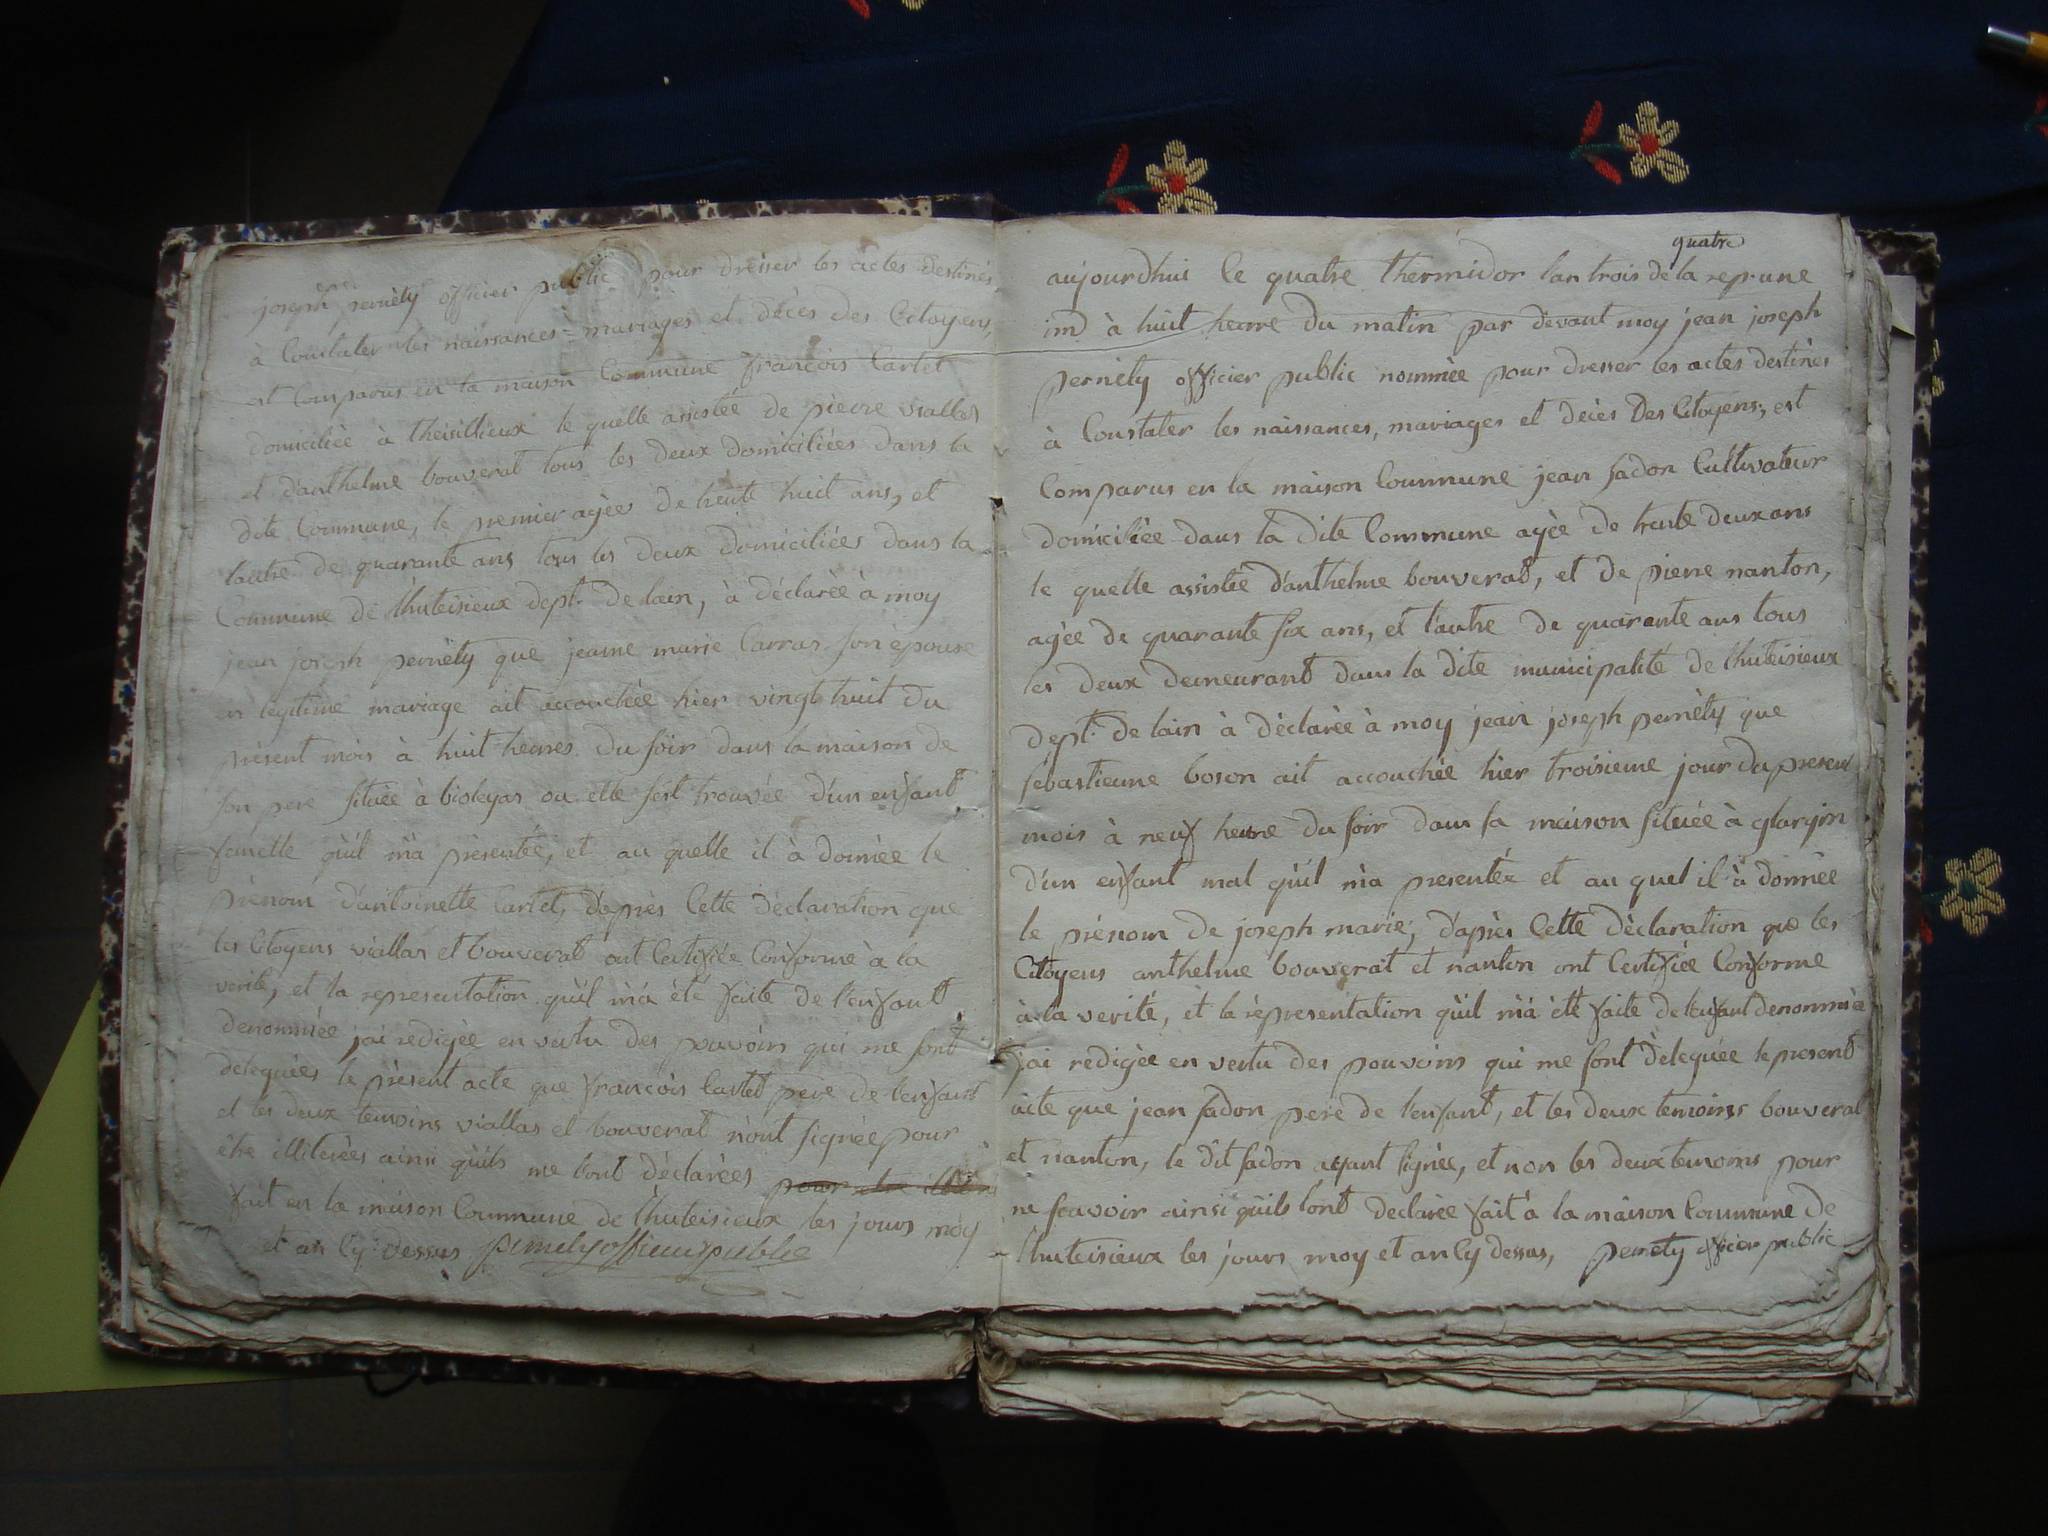 joseph pernéty officier public pour dresser les actes destinés
à Constater les naissances = mariages et décès des Citoyens,
est Comparus en la maison Commune françois Cartet
domiciliée à theisillieux le quelle assistée de pierre viallas
et d'anthelme bouverat tous les deux domiciliées dans la
dite Commune, le premier agées de trente huit ans, et
lautre de quarante ans tous les deux domiciliées dans la
Commune de lhuteisieux dept. de lain, à déclarée à moy
jean joseph pernéty que jeanne marie Carras son épouse
en legitime mariage ait accouchée hier vingt huit du
présent mois à huit heures du soir dans la maison de
son pere située à bioleyas ou elle s'est trouvée d'un enfant
famelle qu'il m'a présentée, et au quelle il à donnée le
prénom d'antoinette Cartet, d'après Cette déclaration que
les Citoyens viallas et bouverat ont Certifiée Conforme à la
verité, et la representation qu'il m'a été faite de l'enfant
denommée j'ai redigée en vertu des pouvoirs qui me sont
deleguées le présent acte que françois Cartet pere de l'enfant
et les deux temoins viallas et bouverat n'ont signée pour
être illiterées ainsi qu'ils me l'ont déclarées pour etre
fait en la maison Commune de lhuteisieux les jours moy
et an Cy: dessus pernety officier public
quatre
aujourdhui le quatre thermidor lan trois de la rep. une
im à huit heure du matin par devant moy jean joseph
pernéty officier public nommée pour dresser les actes destinés
à Constater les naissances, mariages et décès Des Citoyens, est
Comparus en la maison Commune jean sadon Cultivateur
domiciliée dans la dite Commune agée de trente deux ans
le quelle assistée d'anthelme bouverat, et de pierre nanton,
agée de quarante six ans, et l'autre de quarante ans tous
les deux demeurant dans la dite municipalité de lhuteisieux
dept. de lain à déclarée à moy jean joseph pernéty que
sebastienne boson ait accouchée hier troisieme jour du present
mois à neuf heure du soir dans sa maison située à glargin
d'un enfant mal qu'il m'a presentée et au quel il à donnée
le prénom de joseph marie, d'après Cette déclaration que les
Citoyens anthelme bouverat et nanton ont Certifiée Conforme
à la verité, et la représentation qu'il m'a été faite de l'enfant denommée
j'ai redigée en vertu des pouvoirs qui me sont deleguée le present
acte que jean sadon pere de l'enfant, et les deux temoins bouverat
et nanton, le dit sadon ayant signée, et non les deux temoins pour
ne scavoir ainsi qu'ils l'ont declarée fait à la maison Commune de
lhuteisieux les jours moy et an Cy dessus, pernety officier public